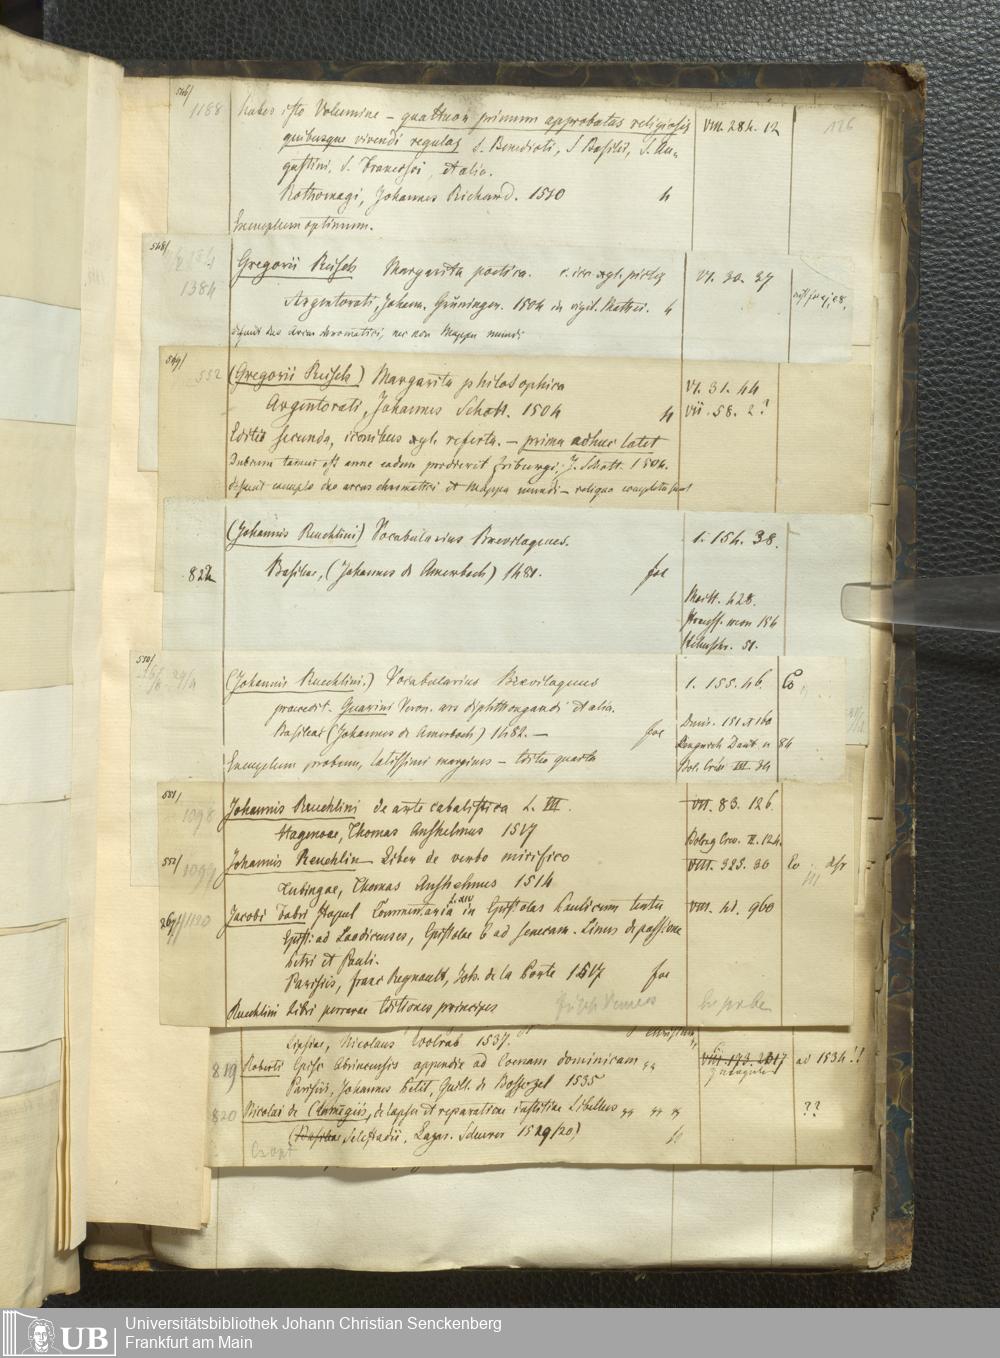 546/
1188 Habes isto Volumine – quattuor primum approbatas religiosis VIII. 284. 12 126
quibusque vivendi regulas S. Benedicti, S Basilii, S. Au„
gustini, S. Francisci, et alia.
Rothomagi, Johannes Richard. 1510 4
Exemplum optimum.
548/
1384 Gregorii Reisch Margarita poetica. c. icc. xyl. pictis VI. 30. 37
Argentorati, Johann. Grüninger. 1504 in vigil. Mathei. 4
desunt duo arcus chromatici, nec non Mappa mundi
549/
552 (Gregorii Reisch) Margarita philosophica VI. 31. 44
Argentorati, Johannes Schott. 1504 4 VII. 58. 2?
Editio secunda, iconibus xyl. referta. – prima adhuc latet
Dubium tamen est anne eadem prodierit Friburgi, J. Schott. 1504.
desunt exemplo duo arcus chromatici et Mappa mundi – reliqua completa sunt
(Johannis Reuchlini) Vocabularius Breviloquus. 1. 154. 38.
822 Basileae, (Johannes de Amerbach) 1481. fol
Maitt. 428.
51.
550/
(Johannis Reuchlini.) Vocabularius Breviloquus 1. 155. 46. Co
praecedit. Guarini Veron. ars diphthongandi et alia.
Basileae (Johannes de Amerbach) 1482. – fol Denis. 151 et 160
84
Exemplum probum, latissimi margines – Editio quarta Bol. Crev. III. 34
551/
1098 Johannis Reuchlini de arte cabalistica L. III. VII. 83. 126
Hagenoae, Thomas Anshelmus 1517 Bolog Crev. II. 124.
552/
1097 Johannis Reuchlin Liber de verbo mirifico VIII. 325. 30 Co
Tubingae, Thomas Anshelmus 1514
267/ 1120 Jacobi Fabri Stapul Commentaria L. XIV in Epistolas Paulicum textu VIII. 41. 960
Epist: ad Laodicenses, Epistolae 6 ad Senecam. Linus de passione
Petri et Pauli.
Parisiis, Franc Regnault, Joh. de la Porte 1517 fol
Reuchlini Libri perrarae Editiones principes
Lipsiae, Nicolaus Wolrab 1537.
819 Roberti Episc Abrincensis appendix ad Coenam dominicam „ VII. 173. 2017 ad 1534!!
Parisiis, Johannes Petit, Guill. de Bossozel 1535
820 Nicolai de Clamegiis, de lapsu et reparatione iustitiae Libellus „ „ „ ??
(Basileae Selestadii, Lazar. Schurer 1519/20) 4
Universitätsbibliothek Johann Christian Senckenberg
UB
Frankfurt am Main